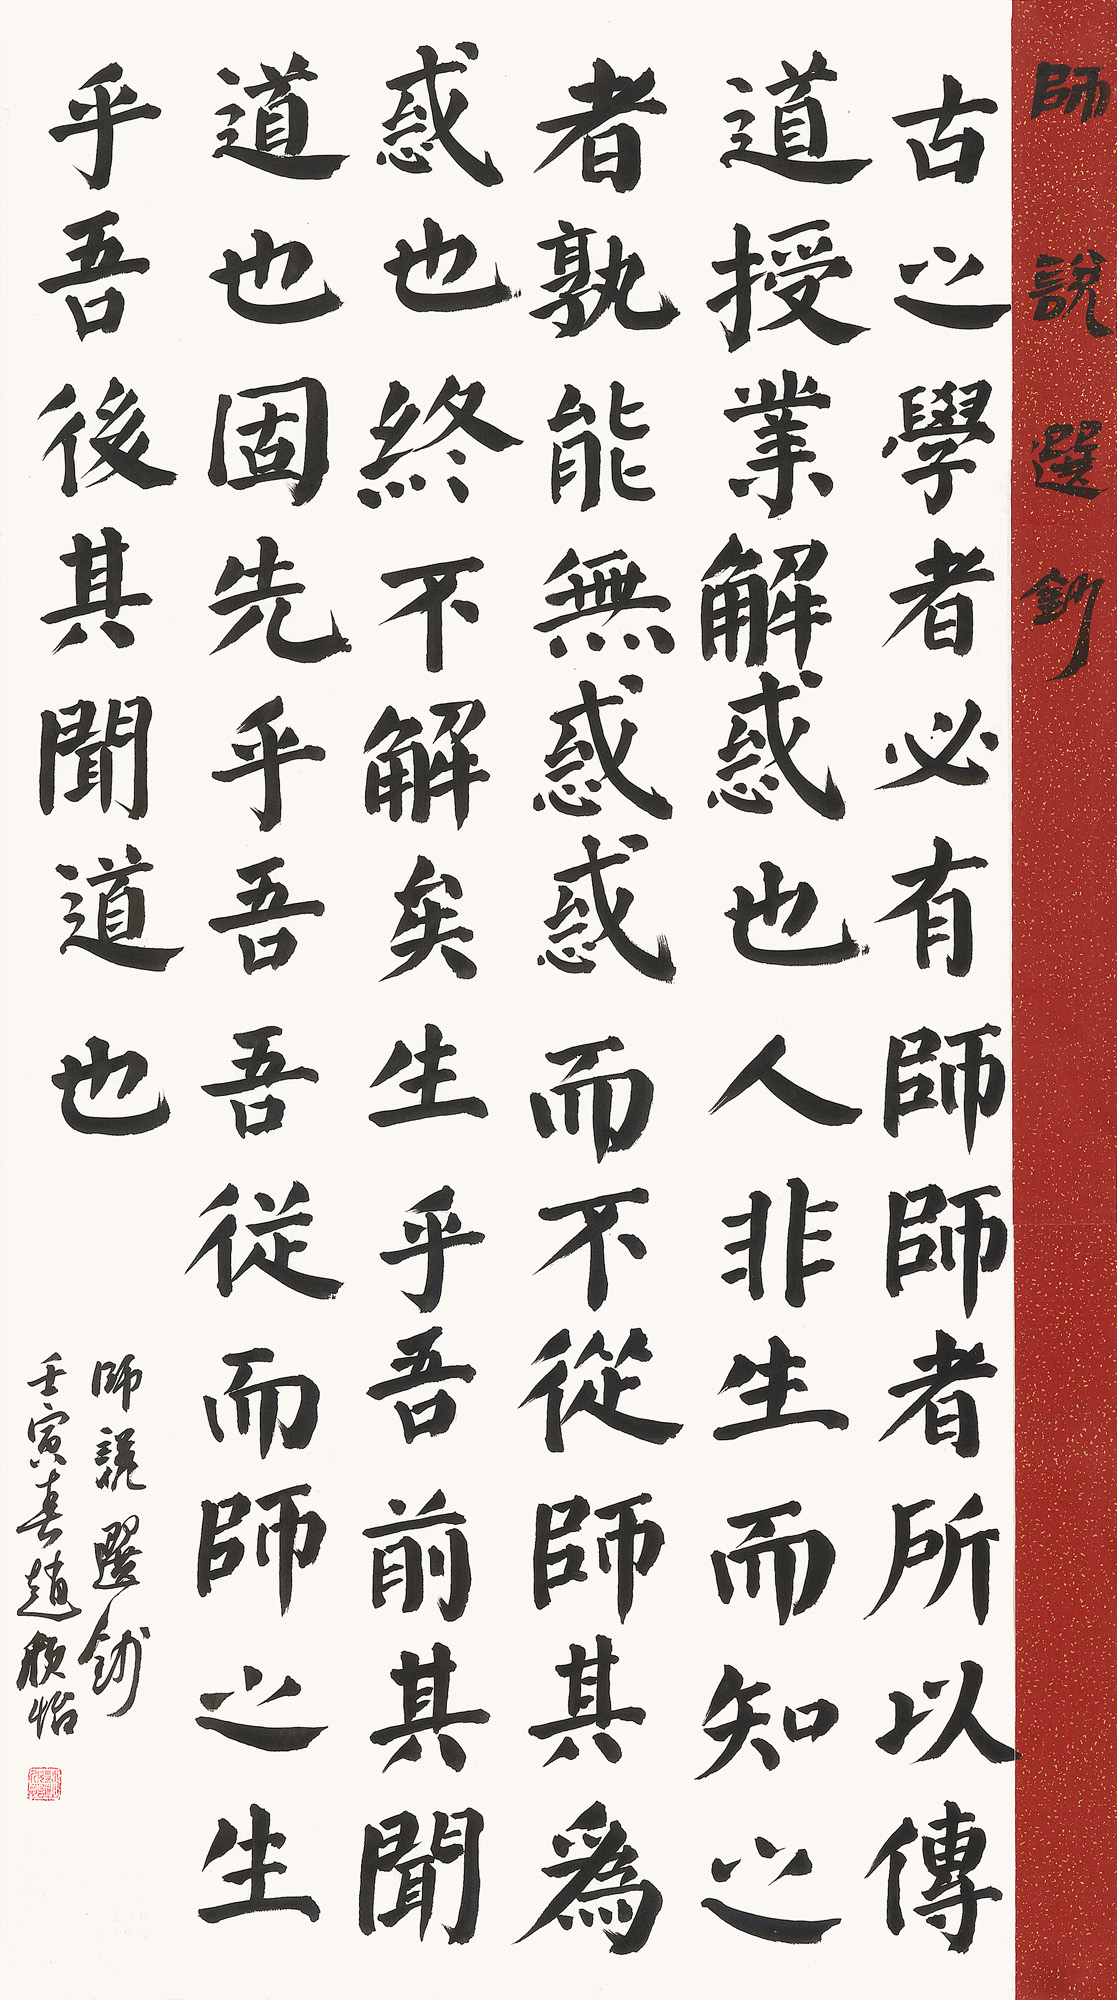 師說選鈔
古之學者必有師師者所以傳
道授業解惑也人非生而知之
者孰能無惑惑而不從師其爲
惑也終不解矣生乎吾前其聞
道也固先乎吾吾従而師之生
乎吾後其聞道也
師說選鈔
壬寅春趙怡